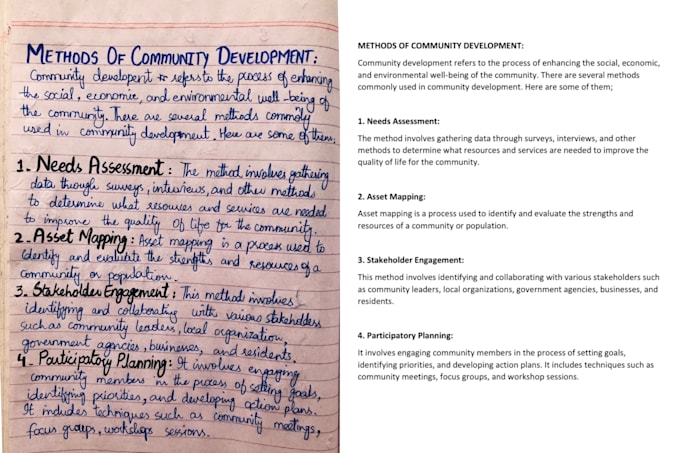 METHODS OF COMMUNITY DEVELOPMENT:
Community developent refers to the process of enhancing
the social, economic, and environmental well-being of
the community. There are several methods commonly
used in community development. Here are some of them;
1. Needs Assessment: The method involves gathering
data through surveys, interviews, and other methods
to determine what resources and services are needed
to improve the quality of life for the community.
2. Asset Mapping: Asset mapping is a process used to
identify and evaluate the strengths and resources of a
community or population.
3. Stakeholder Engagement: This method involves
identifying and collaborating with various stakeholders
such as community leaders, local organization,
government agencies, businesses, and residents.
4. Participatory Planning: It involves engaging
community members in the process of setting goals,
identifying priorities, and developing action plans.
It includes techniques such as community meetings,
focus groups, workshops sessions.
METHODS OF COMMUNITY DEVELOPMENT:
Community development refers to the process of enhancing the social, economic,
and environmental well-being of the community. There are several methods
commonly used in community development. Here are some of them;
1. Needs Assessment:
The method involves gathering data through surveys, interviews, and other
methods to determine what resources and services are needed to improve the
quality of life for the community.
2. Asset Mapping:
Asset mapping is a process used to identify and evaluate the strengths and
resources of a community or population.
3. Stakeholder Engagement:
This method involves identifying and collaborating with various stakeholders such
as community leaders, local organizations, government agencies, businesses, and
residents.
4. Participatory Planning:
It involves engaging community members in the process of setting goals,
identifying priorities, and developing action plans. It includes techniques such as
community meetings, focus groups, and workshop sessions.